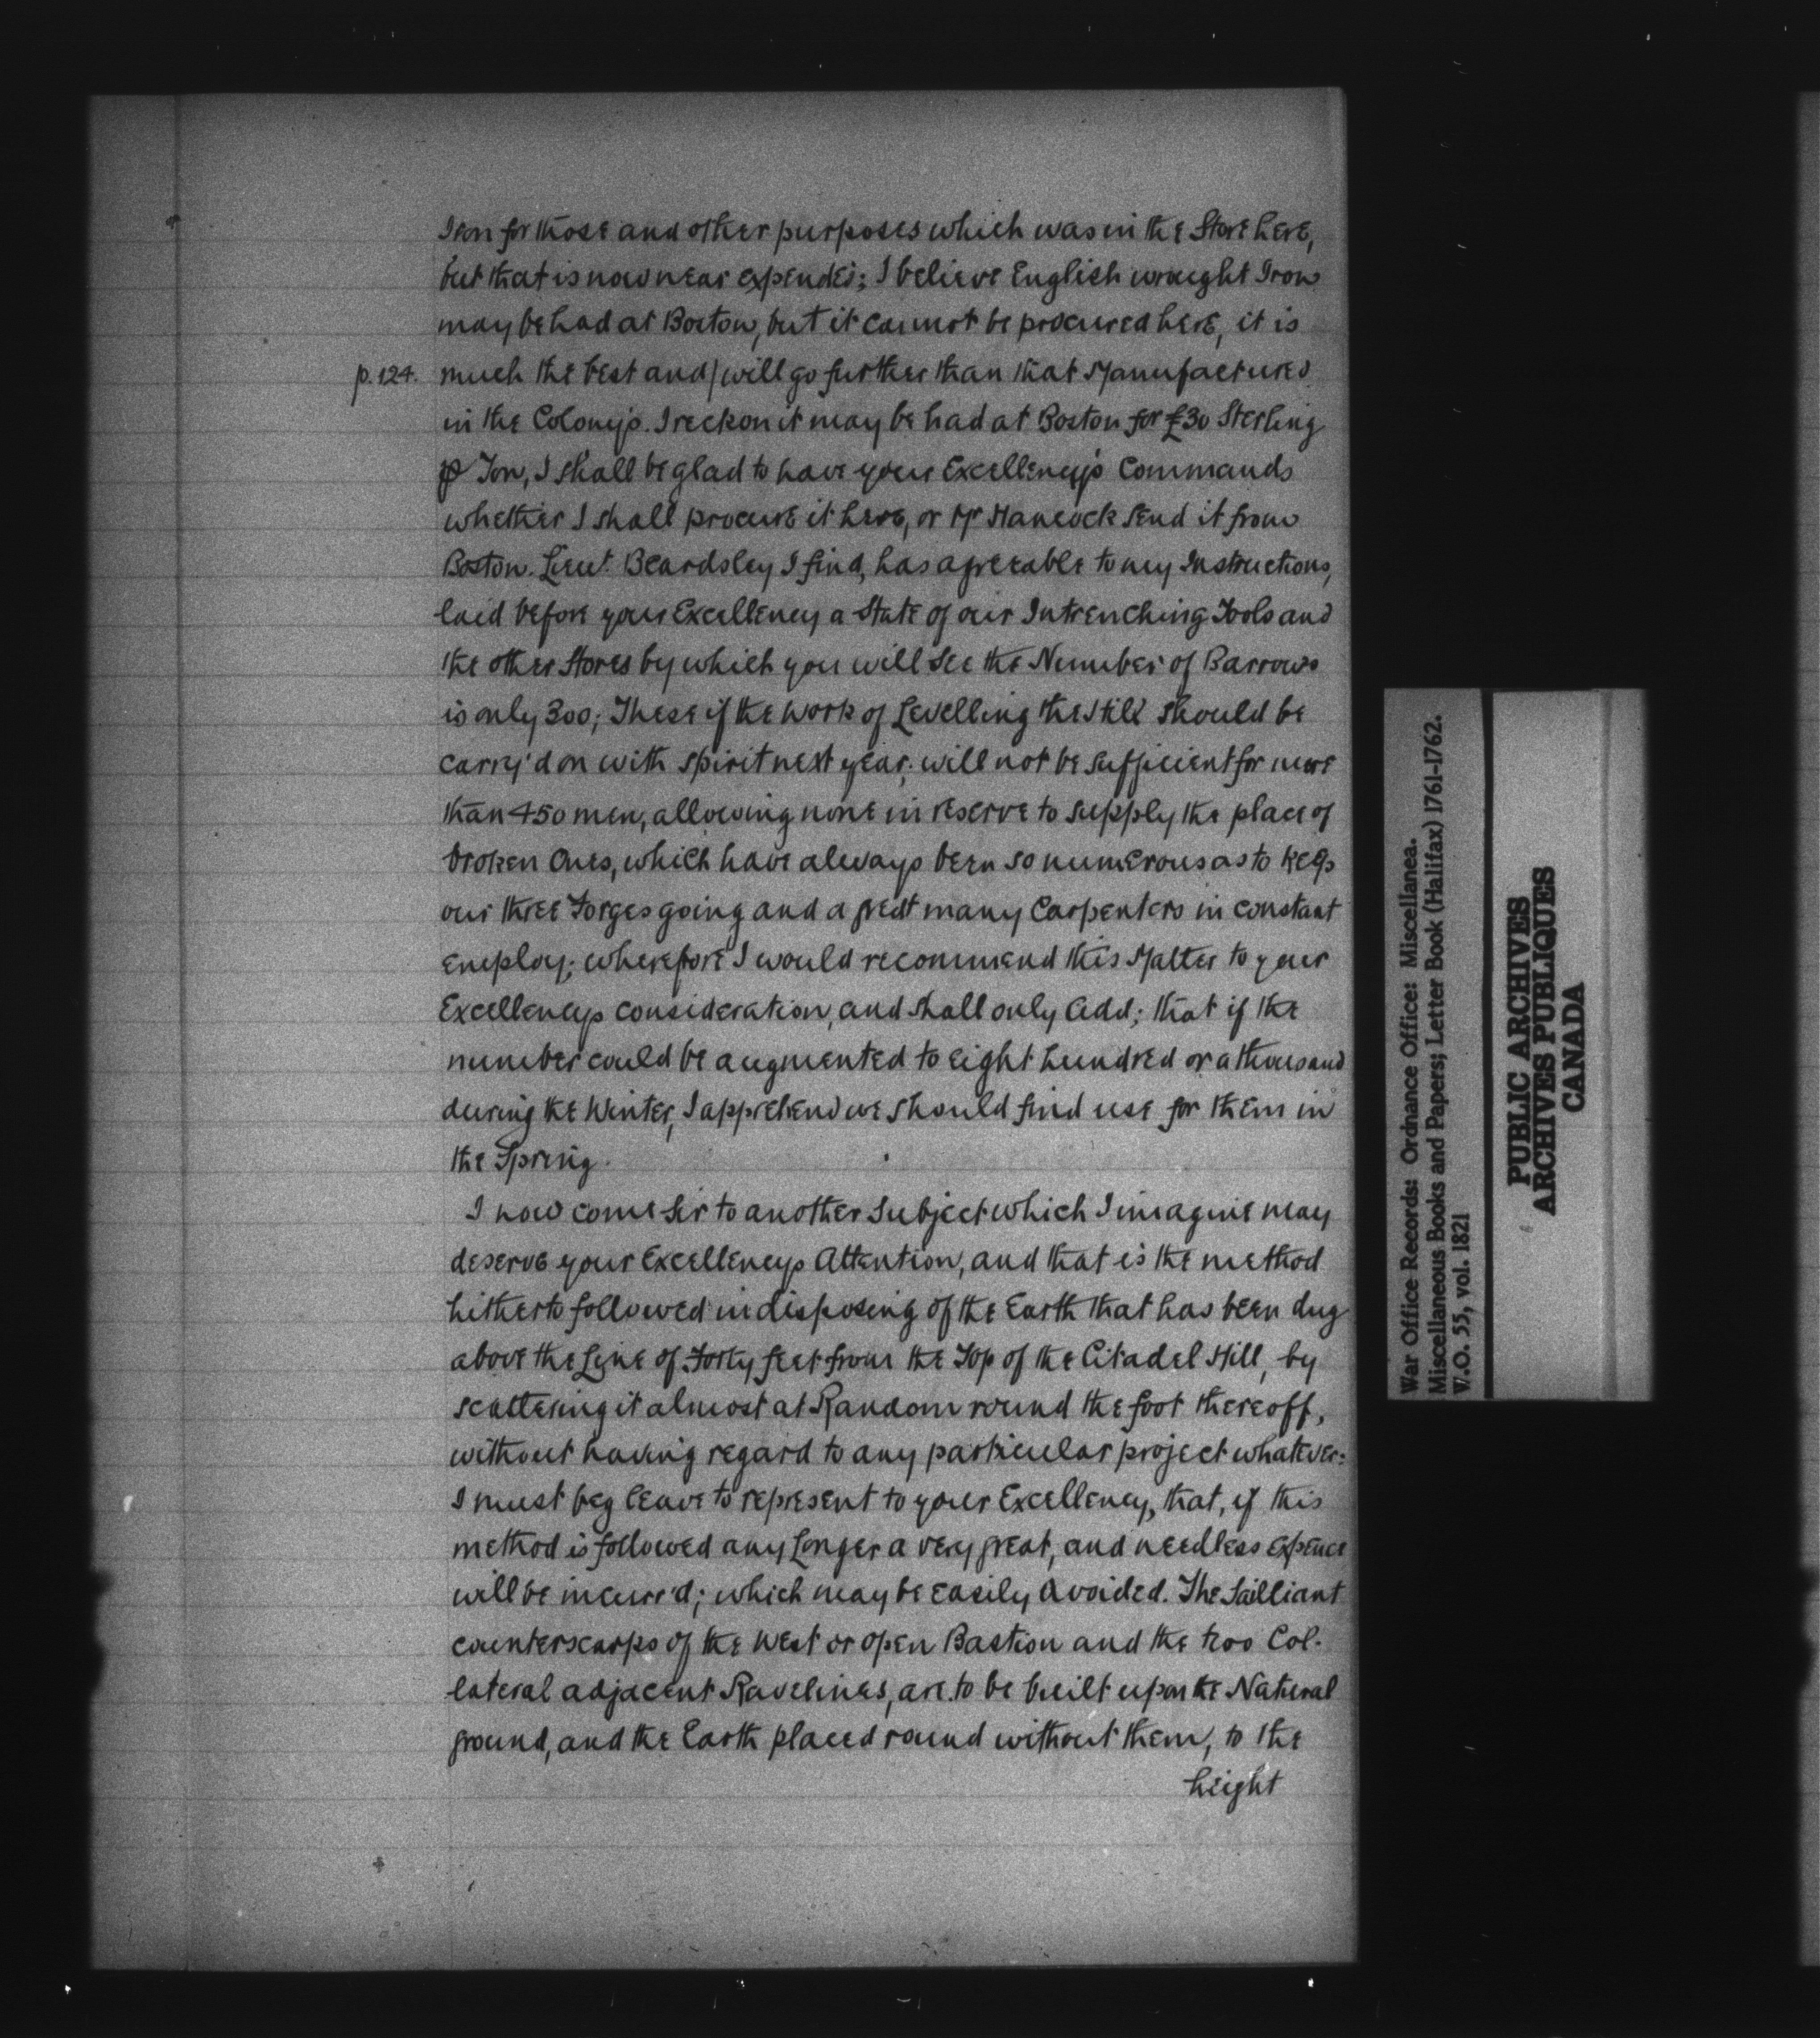 Iron for those and other purposes which was in the Store here,
but that is now near expended; I believe English wrought Iron
may be had at Boston, but it cannot be procured here, it is
p. 124. much the best and/will go further than that Manufactured
in the Colony's. I reckon it may be had at Boston for £30 Sterling
⅌ Ton, I shall be glad to have your Excellency's Commands
whether I shall procure it here, or Mr Hancock send it from
Boston. Lieut. Beardsley I find, has agreeable to my Instructions,
laid before your Excellency a State of our Intrenching Tools and
the other Stores by which you will see the Number of Barrows
is only 300; These if the Work of Levelling the Hill should be
carry'd on with spirit next year, will not be sufficient for more
than 450 men, allowing none in reserve to supply the place of
broken Ones, which have always been so numerous as to keep
our three Forges going and a great many Carpenters in constant
employ; wherefore I would recommend this Matter to your
Excellencys consideration, and shall only add; that if the
number could be augmented to eight hundred or a thousand
during the Winter, I apprehend we should find use for them in
the Spring.
I now come Sir to another Subject which I imagine may
deserve your Excellencys Attention, and that is the method
hitherto followed in disposing of the Earth that has been dug
above the Line of Forty feet from the Top of the Citadel Hill, by
scattering it almost at Random round the foot thereoff,
without having regard to any particular project whatever:
I must beg leave to represent to your Excellency, that, if this
method is followed any Longer a very great, and needless expence
will be incurr'd; which may be easily avoided. The Sailliant
counterscarps of the West or open Bastion and the two Col-
lateral adjacent Ravelines, are to be built upon the Natural
ground, and the Earth placed round without them, to the
height
War Office Records: Ordnance Office: Miscellanea.
Miscellaneous Books and Papers; Letter Book (Halifax) 1761-1762.
W.O. 55, vol. 1821
PUBLIC ARCHIVES
ARCHIVES PUBLIQUES
CANADA